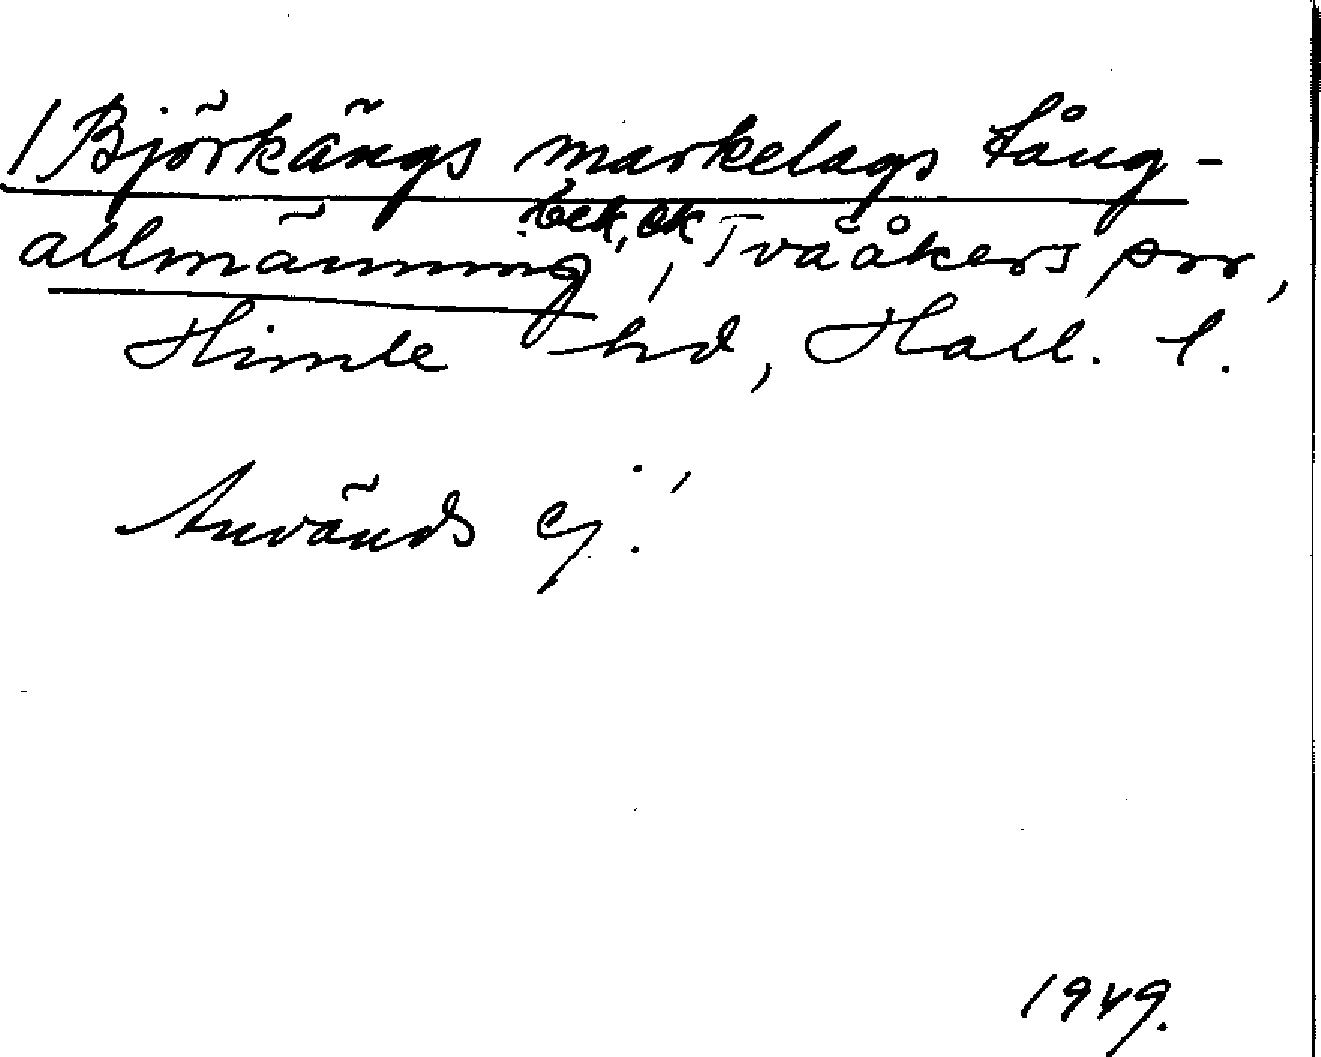 /Björkängs markelags tång-
allmänning, Tvååkers snr,
Himle hd, Hall. l.
Används ej.
1949.